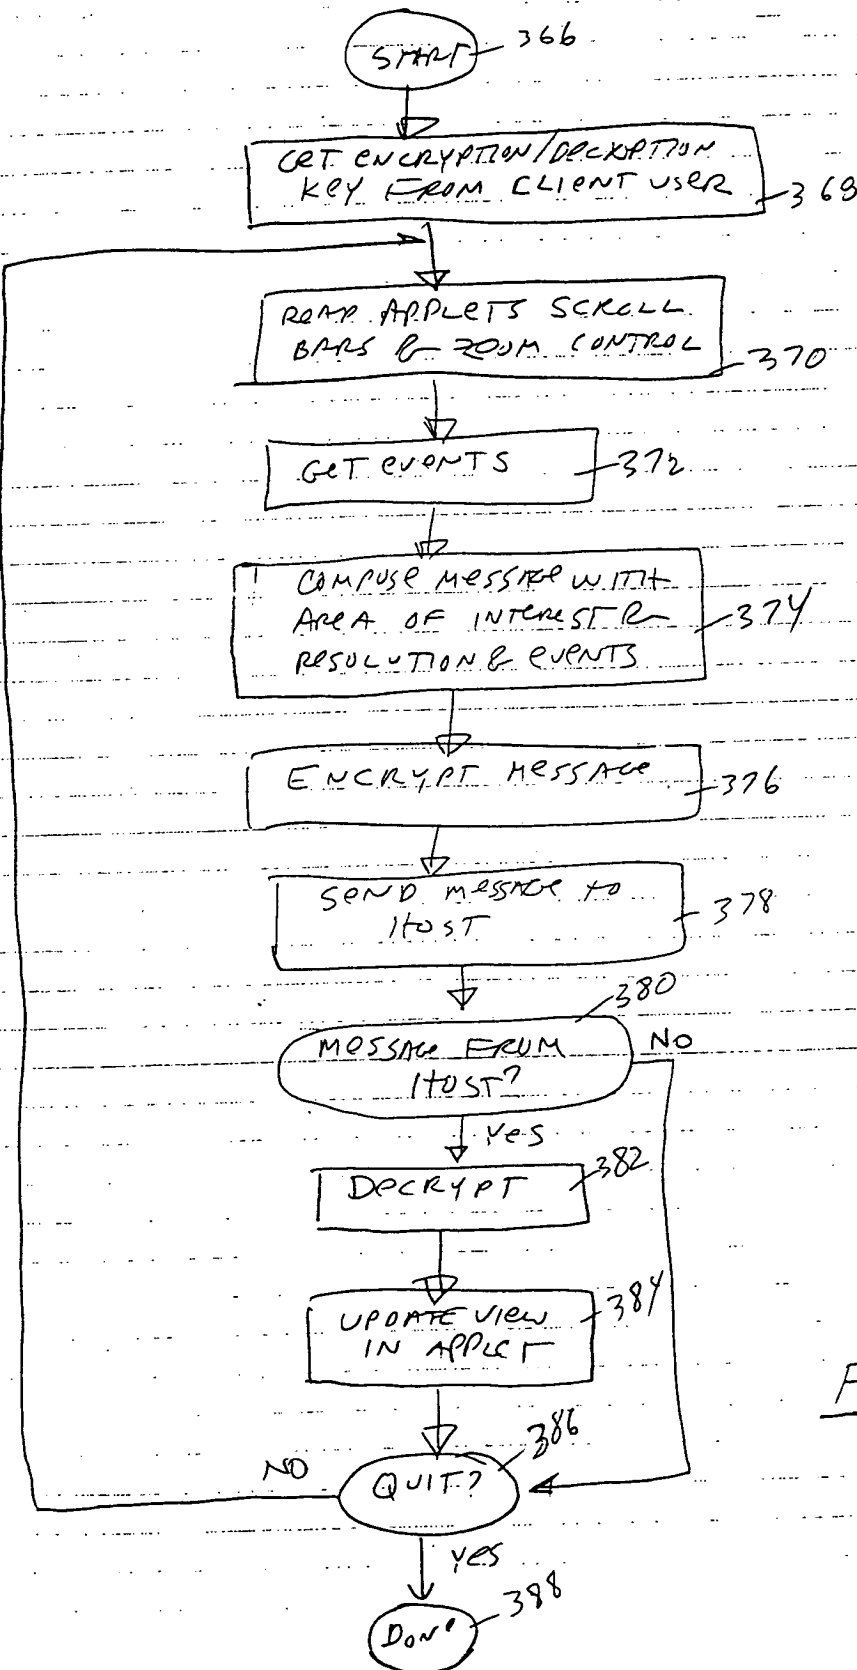 START 366
GET ENCRYPTION/DECRYPTION
KEY FROM CLIENT USER 368
READ APPLETS SCROLL
BARS & ZOOM CONTROL 370
GET EVENTS 372
COMPOSE MESSAGE WITH
AREA OF INTEREST &
RESOLUTION & EVENTS 374
ENCRYPT MESSAGE 376
SEND MESSAGE TO
HOST 378
380
MESSAGE FROM NO
HOST?
YES
DECRYPT 382
UPDATE VIEW 384
IN APPLET
F
386
NO QUIT?
YES
DONE 388